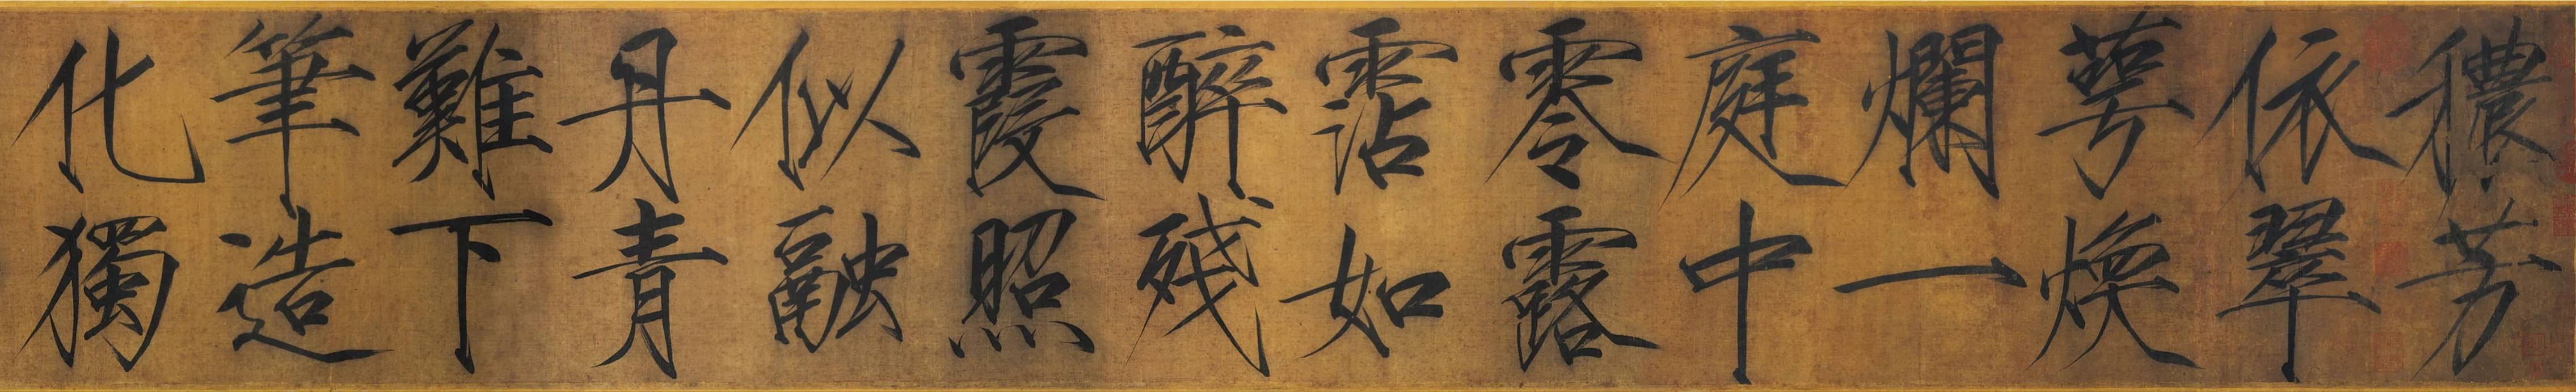 穠芳
依翠
萼煥
爛一
庭中
零露
霑如
醉殘
霞照
似融
丹青
難下
筆造
化獨